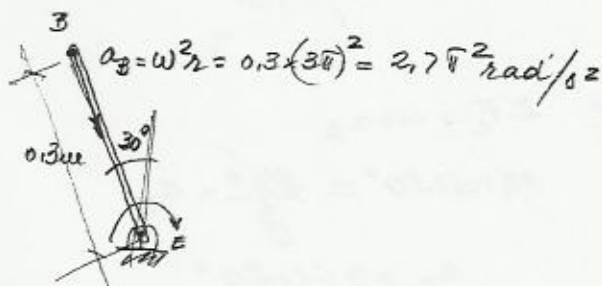 B
a_B = ω²r = 0,3 × (3π)² = 2,7 π² rad/s²
30°
0,3m
E